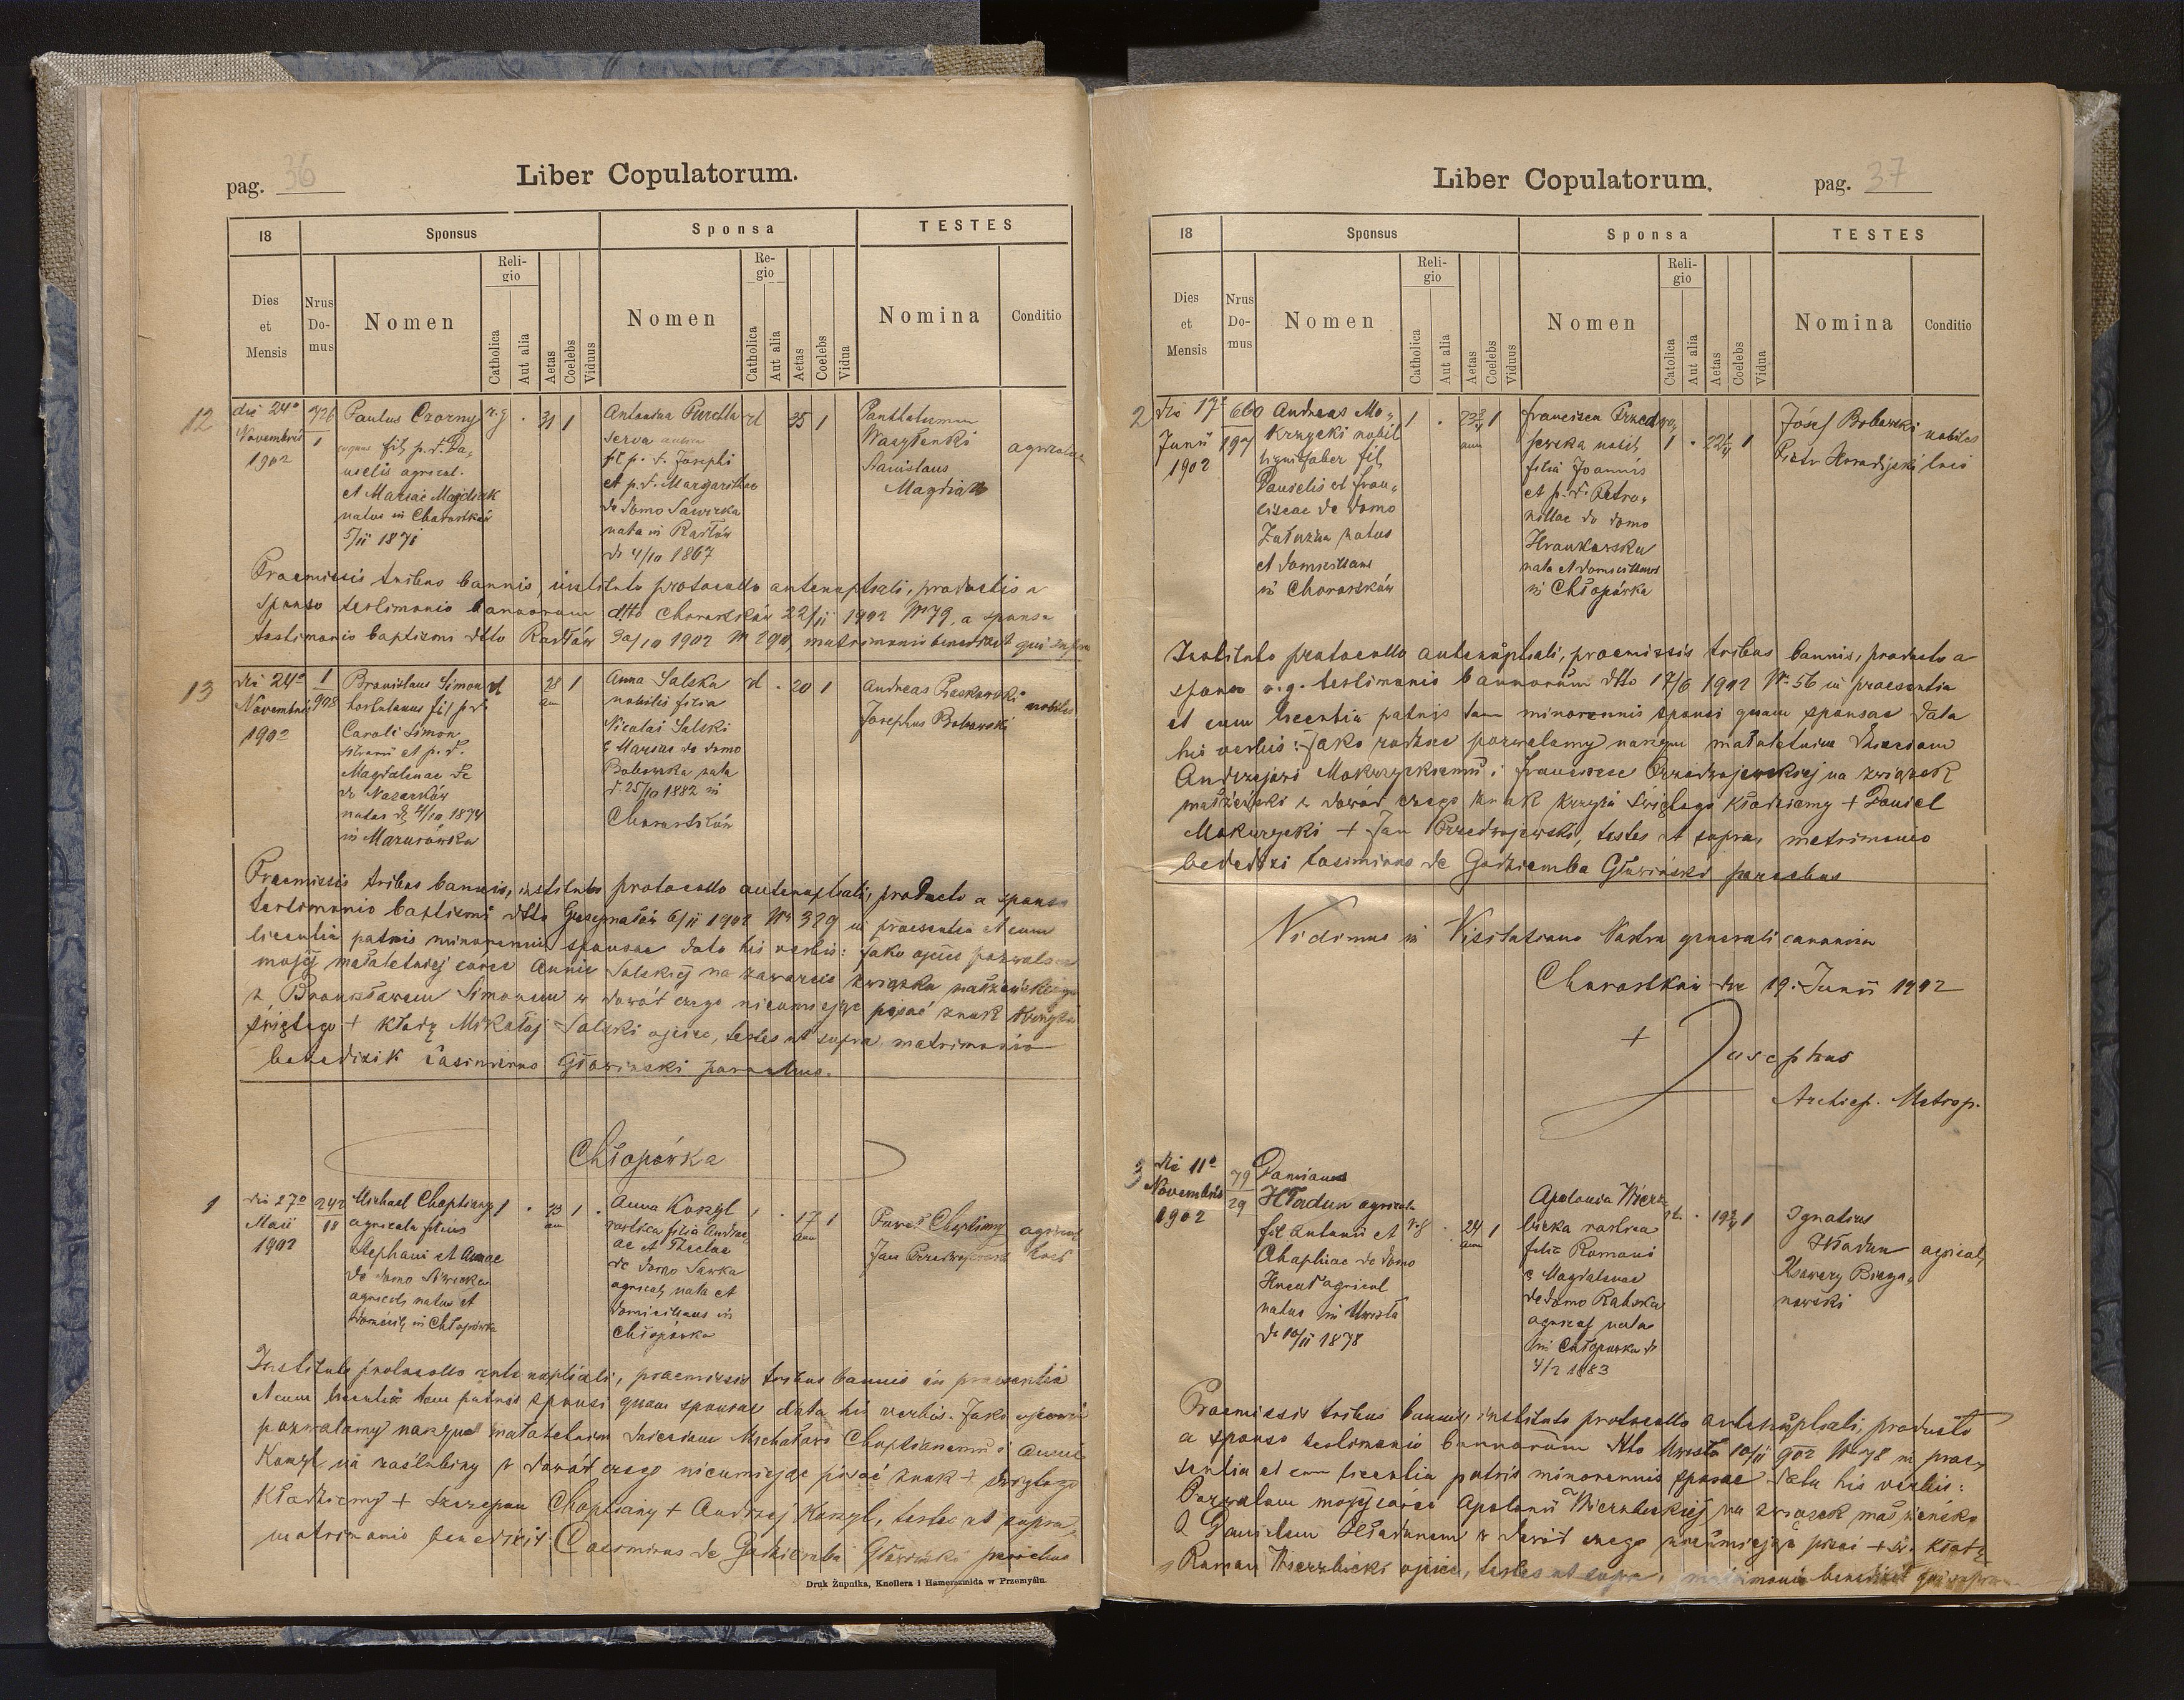 pag. 36
Liber Copulatorum.
18
Sponsus
Sponsa
TESTES
Dies et Mensis
Nrus Do- mus
Nomen
Reli- gio
Catholica
Aut alia
Aetas
Coelebs
Viduus
Nomen
Re- gio
Catholica
Aut alia
Aetas
Coelebs
Vidua
Nomina
Conditio
12
die 24a
Novembris
1902
Paulus Czorny
fil. p. d. Da-
nielis agricol.
et Mariae Magdiak
natus in Chorostków
5/II 1871
r. g
31 1
Antonina Puretta
serva
fil p. d. Josephi
et p. d. Margarithae
de domo Sawicka
nata in Kasłów
d. 4/10 1867
rl
35 1
Panthalemon
Wasylenki
Stanislaus
Magdiak
agricolae
Praemissis tribus bannis, instituto protocollo antenuptiali, productis a
sponso testimonio bannorum dtto Chorostków 22/II 1902 No 79, a sponsa
testimonio baptismi dtto Kasłów 30/10 1902 No 290, matrimonio benedixit qui supra
13
die 24a
Novembris
1902
1
908
Bronislaus Simon
hortulanus fil p. d.
Caroli Simon
et p. d.
Magdalenae de
do Nazarków
natus d. 4/10 1874
in Mazurówka
rl
28 1
an
Anna Salska
nobilis filia
Nicolai Salski
& Mariae de domo
Bobowska nata
d. 25/10 1882 in
Chorostków
rl
20 1
Andreas
Josephus Bobowski
nobiles
Praemissis tribus bannis, instituto protocollo antenuptiali, producto a sponso
testimonio baptismi dtto Grzymałów 6/II 1902 No 329 in praesentia et cum
licentia patris minorennis sponsae dato his verbis: Jako ojciec pozwalam
mojej małoletniej córce Annie Salskiej na zawarcie związku małżeńskiego
z Bronisławem Simonem w dowód czego nieumiejąc pisać znak krzyża
świętego + kładę Mikołaj Salski ojciec, testes ut supra, matrimonio
benedixit Casimirus Gławiński parochus.
Chłopówka
1
die 27a
Maii
1902
242
18
Michael Chaptiany
agricola filius
Stephani et Annae
de domo
agricol. natus et
domicil. in Chłopówka
1
23 1
an
Anna Kozyl
rustica filia Andre-
ae et Theclae
de domo Sawka
agricol. nata et
domicilians in
Chłopówka
1
17 1
ann
Paweł Chaptiany
Jan Przedwojewski
Instituto protocollo antenuptiali, praemissis tribus bannis in praesentia
et cum licentia tam patris sponsi quam sponsae data his verbis. Jako ojcowie
pozwalamy naszym małoletnim dzieciom Michałowi Chaptianemu i Annie
Kozyl na zaślubiny w dowód czego nieumiejąc pisać znak + świętego
kładziemy + Szczepan Chaptiany + Andrzej Kozyl, testes ut supra,
matrimonio benedixit Casimirus de Godziemba Gławiński parochus
Druk Żupnika, Knollera i Hamerszmida w Przemyślu.
Liber Copulatorum.
pag. 37
18
Sponsus
Sponsa
TESTES
Dies et Mensis
Nrus Do- mus
Nomen
Reli- gio
Catholica
Aut alia
Aetas
Coelebs
Viduus
Nomen
Reli- gio
Catolica
Aut alia
Aetas
Coelebs
Vidua
Nomina
Conditio
2
die 17a
Junii
1902
660
197
Andreas Mo-
krzycki nobil
lignifaber fil.
Danielis et Fran-
ciscae de domo
Załuzna natus
et domicilians
in Chorostków
1
ann
Francisca Przedwo-
jewska nobil.
filia Joannis
et p. d. Petro-
nillae de domo
Hrankowska
nata et domicilians
in Chłopówka
1
Józef Bobowski
Piotr Horodyjski
nobiles
Instituto protocollo antenuptiali, praemissis tribus bannis, producto a
sponso r. g. testimonio bannorum dtto 17/6 1902 No 56 in praesentia
et cum licentia patris tam minorennis sponsi quam sponsae data
his verbis: Jako rodzice pozwalamy naszym małoletnim dzieciom
Andrzejowi Mokrzyckiemu i Francisce Przedwojewskiej na związek
małżeński w dowód czego znak krzyża świętego kładziemy + Daniel
Mokrzycki + Jan Przedwojewski, testes ut supra, matrimonio
Casimirus de Godziemba Gławiński parochus
Vidimus in Visitatione Nostra generali canonica
Chorostków die 19. Junii 1902
+ Josephus
Archiep. Metrop.
3
die 11a
Novembris
1902
79
29
Damianus
Hładun agricola
fil Antonii et
Ahaphiae de domo
Hncat agricol
natus in Uwisła
d. 10/II 1878
r. g
24 1
ann
Apolonia Wierz-
bicka rustica
filia Romani
& Magdalenae
de domo Rabska
agricol nata
in Chłopówka d.
4/2 1883
1
Ignatius
Hładun
Ksawery Biega-
nowski
agricol.
Praemissis tribus bannis, instituto protocollo antenuptiali, producto
a sponso testimonio bannorum dtto Uwisła 10/II 902 No 78 in prae-
sentia et cum licentia patris minorennis sponsae data his verbis:
Pozwalam mojej córce Apolonii Wierzbickiej na związek małżeński
z Damianem Hładunem w dowód czego nieumiejąc pisać + św. kładę
Roman Wierzbicki ojciec, testes ut supra, matrimonio benedixit qui supra